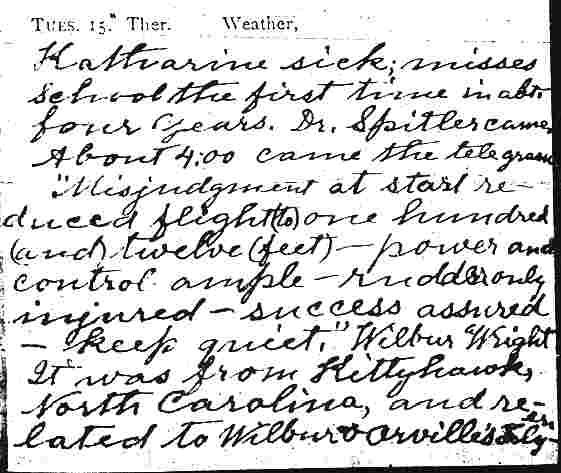 TUES. 15. Ther. Weather,
Katharine sick; misses
school the first time in abt.
four years. Dr. Spitler came.
About 4:00 came the telegram
"Misjudgment at start re-
duced flight (to) one hundred
(and) twelve (feet) — power and
control ample — rudder only
injured — success assured
— keep quiet." Wilbur Wright
It was from Kittyhawk,
North Carolina, and re-
lated to Wilbur & Orville's